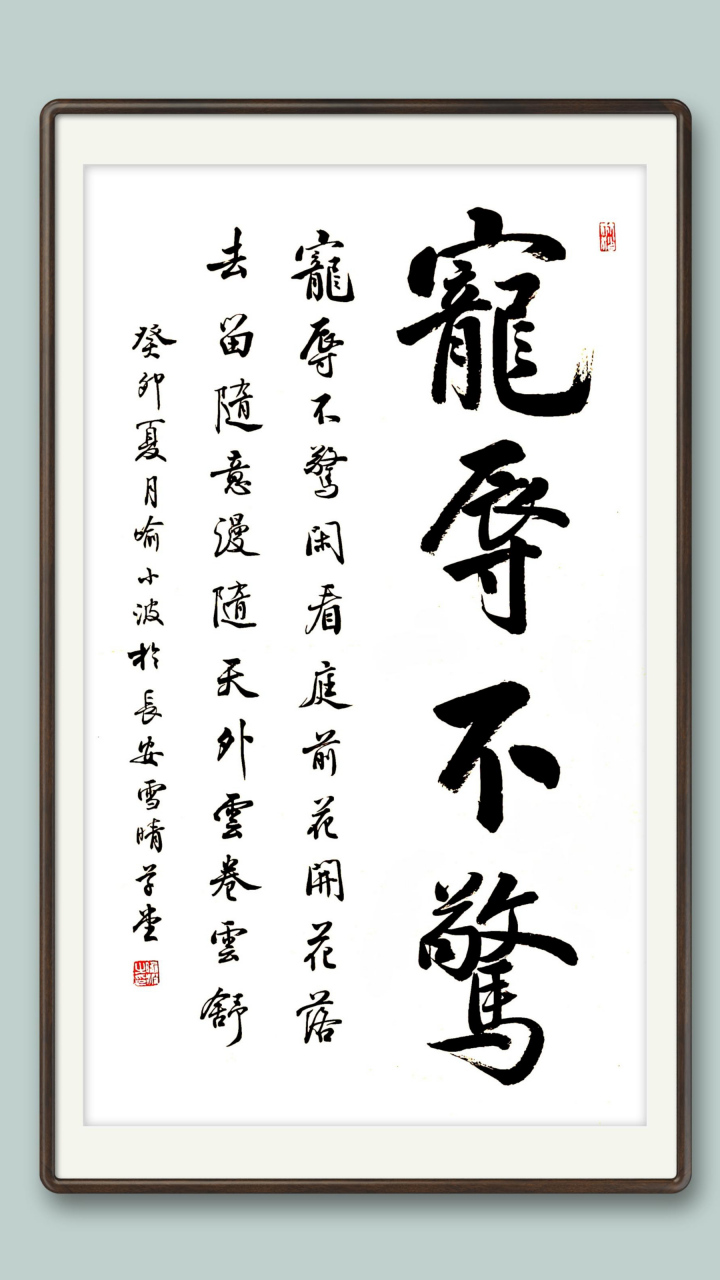 寵辱不驚
寵辱不驚閑看庭前花開花落
去留隨意漫隨天外雲卷雲舒
癸卯夏月喻小波於長安雪晴草堂